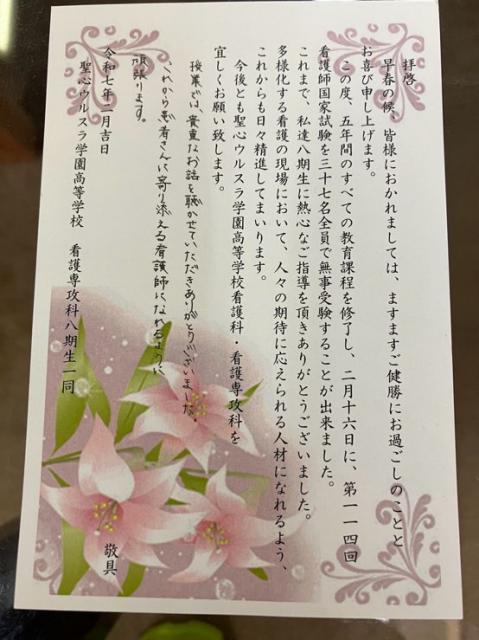 拝啓
早春の候、皆様におかれましては、ますますご健勝にお過ごしのことと
お喜び申し上げます。
この度、五年間のすべての教育課程を修了し、二月十六日に、第一一四回
看護師国家試験を三十七名全員で無事受験することが出来ました。
これまで、私達八期生に熱心なご指導を頂きありがとうございました。
多様化する看護の現場において、人々の期待に応えられる人材になれるよう、
これからも日々精進してまいります。
今後とも聖心ウルスラ学園高等学校看護科・看護専攻科を
宜しくお願い致します。
敬具
授業では、貴重なお話を聴かせていただきありがとうございました。
これから患者さんに寄り添える看護師になれるように
頑張ります。
令和七年二月吉日
聖心ウルスラ学園高等学校 看護専攻科八期生一同